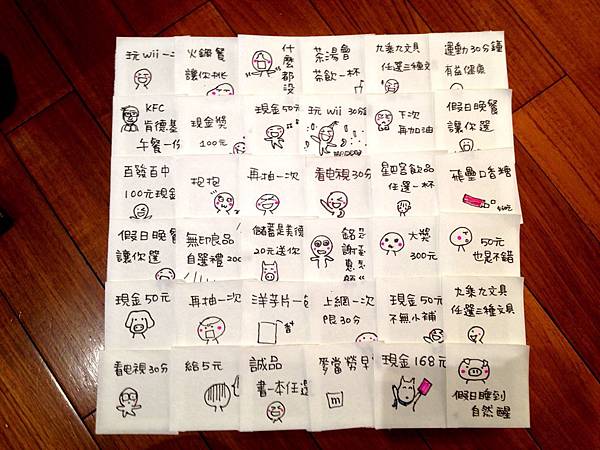 玩wii一
火鍋餐
讓你挑
什麼
都沒
茶湯會
茶飲一杯
九乘九文具
任選三種文
運動30分鐘
有益健康
KFC
肯德基
午餐一份
現金獎
100元
現金50元
玩wii 30分
下次
再加油
假日晚餐
讓你選
百發百中
100元現金
抱抱
再抽一次
看電視30分
星巴克飲品
任選一杯
飛壘口香糖
假日晚餐
讓你選
無印良品
自選禮200
儲蓄是美德
20元送你
銘
謝
惠
顧
大獎
300元
50元
也是不錯
現金50元
再抽一次
洋芋片一包
上網一次
限30分
現金50元
不無小補
九乘九文具
任選三種文具
看電視30分
給5元
誠品
書一本任選
麥當勞早
m
現金168元
假日睡到
自然醒